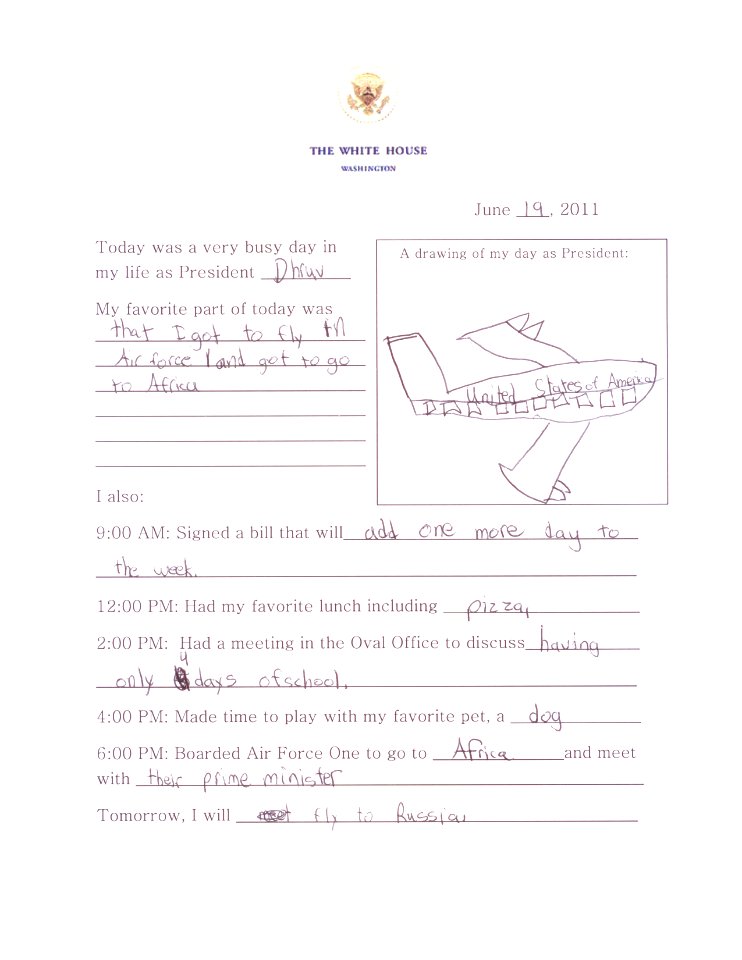 THE WHITE HOUSE
WASHINGTON
June 19, 2011
Today was a very busy day in
my life as President Dhruv
My favorite part of today was
that I got to fly in
Air force 1 and got to go
to Africa
A drawing of my day as President:
United States of America
I also:
9:00 AM: Signed a bill that will add one more day to
the week.
12:00 PM: Had my favorite lunch including pizza,
2:00 PM: Had a meeting in the Oval Office to discuss having
only 4 days of school.
4:00 PM: Made time to play with my favorite pet, a dog
6:00 PM: Boarded Air Force One to go to Africa and meet
with their prime minister
Tomorrow, I will fly to Russia.